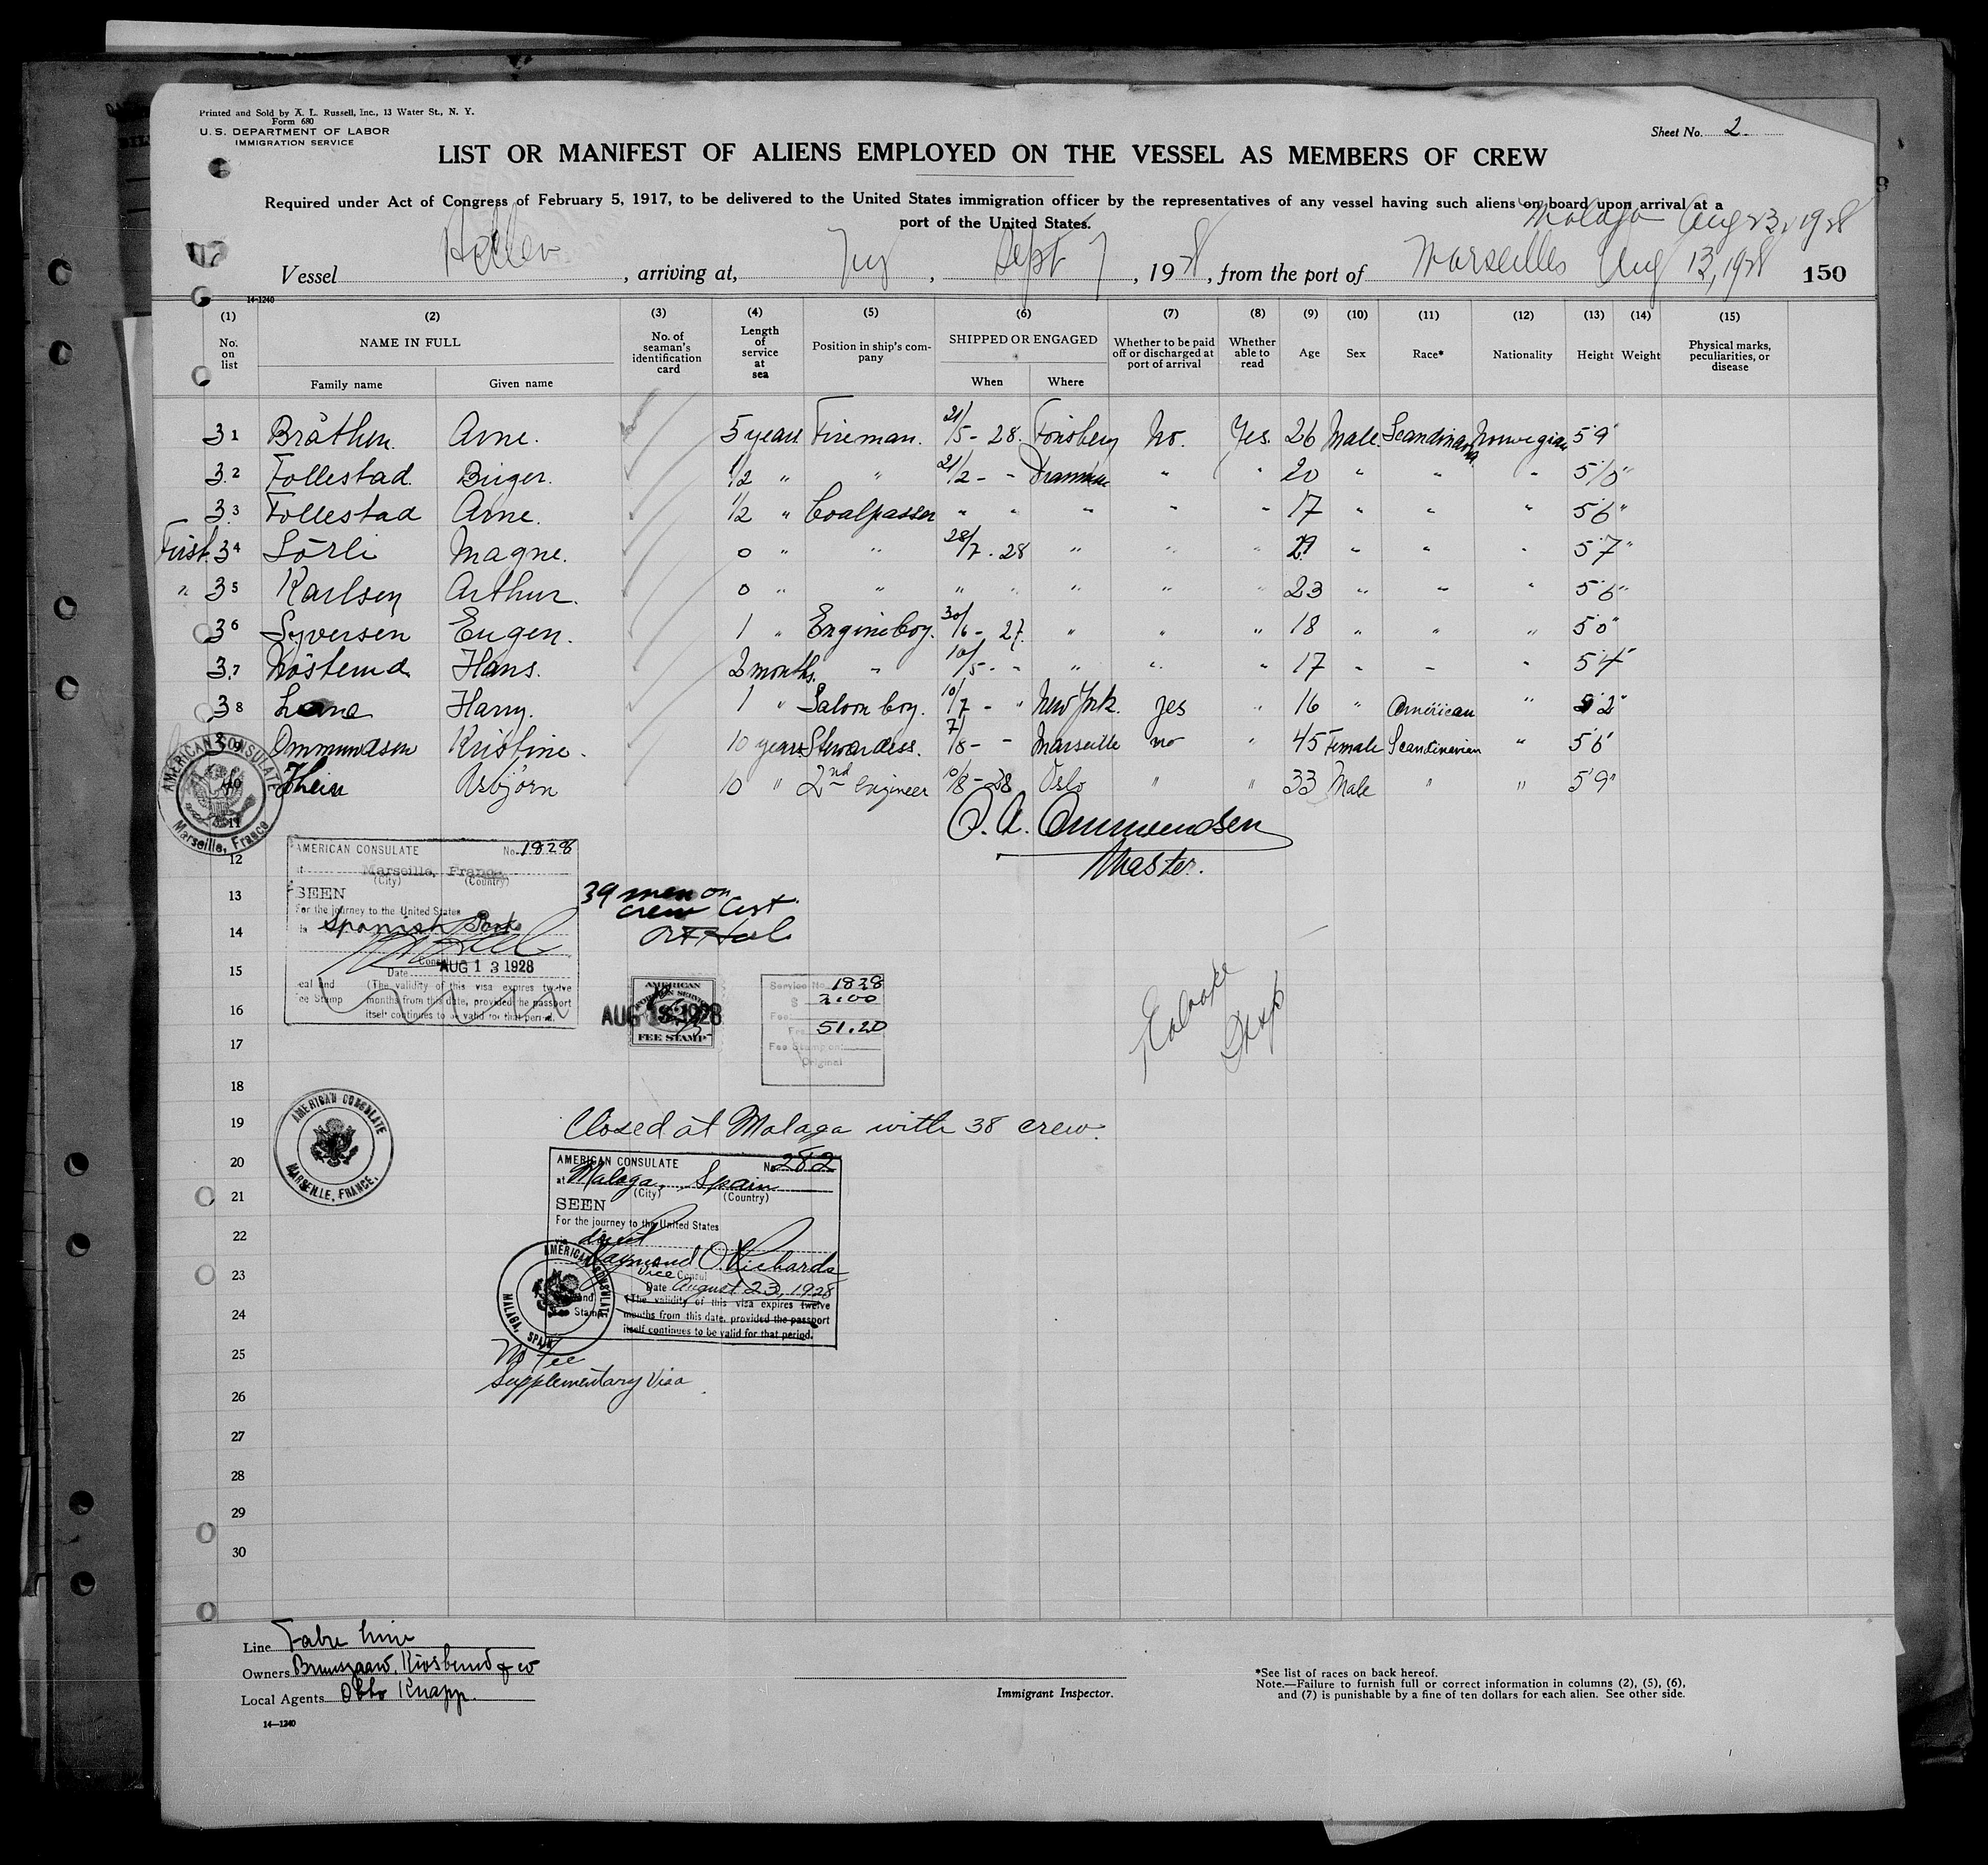 Printed and Sold by A. L. Russell, Inc., 13 Water St., N. Y.
Form 680
U. S. DEPARTMENT OF LABOR
IMMIGRATION SERVICE
Sheet No. 2
LIST OR MANIFEST OF ALIENS EMPLOYED ON THE VESSEL AS MEMBERS OF CREW
Required under Act of Congress of February 5, 1917, to be delivered to the United States immigration officer by the representatives of any vessel having such aliens on board upon arrival at a
port of the United States.
Malaga Aug 23, 1928
Vessel , arriving at, Ny , Sept 7 , 1928, from the port of Marseilles Aug 13, 1928 150
14-1240
(1) (2) (3) (4) (5) (6) (7) (8) (9) (10) (11) (12) (13) (14) (15)
No. on list NAME IN FULL No. of seaman's identification card Length of service at sea Position in ship's company SHIPPED OR ENGAGED Whether to be paid off or discharged at port of arrival Whether able to read Age Sex Race* Nationality Height Weight Physical marks, peculiarities, or disease
Family name Given name When Where
31 Bråthen. Arne. 5 years Fireman. 21/5 - 28. Tönsberg No. Yes. 26 Male. Scandinavian Norwegian 5'9"
32 Follestad. Birger. 1/2 " " 21/2 - - Drammen " " 20 " " " 5'10"
33 Follestad Arne. 1/2 " Coalpasser " " " " " 17 " " " 5'6"
First. 34 Sörli Magne. 0 " " 28/7 - 28 " " " 29 " " " 5'7"
" 35 Karlsen Arthur. 0 " " " " " " " 23 " " " 5'6"
36 Syversen Eugen. 1 " Engineboy. 30/6 - 27. " " " 18 " " " 5'0"
37 Nösterud Hans. 2 months. " 10/5 - - " " " 17 " " " 5'4"
38 Harry. 1 " Saloon boy. 10/7 - " New York. yes " 16 " American " 5'2"
39 Ommundsen Kristine. 10 years Stewardess. 7/8 - - Marseille no " 45 Female Scandinavian " 5'6"
10 Thein Asbjörn 10 " 2nd Engineer 10/8 - 28 Oslo " " 33 Male " " 5'9"
O. A. Ommundsen
Master.
AMERICAN CONSULATE
Marseille, France
11
12
AMERICAN CONSULATE No. 1828
at Marseille, France
(City) (Country)
SEEN
For the journey to the United States
Spanish Ports
Consul
Date AUG 13 1928
Seal and Fee Stamp
(The validity of this visa expires twelve
months from this date, provided the passport
itself continues to be valid for that period.
39 men on
crew list.
13
14
15
16
17
18
AMERICAN
FOREIGN SERVICE
AUG 13 1928
FEE STAMP
Service No. 1828
$ 2.00
Fee:
Frs. 51.20
Fee Stamp on
Original
AMERICAN CONSULATE
MARSEILLE, FRANCE.
19
Closed at Malaga with 38 crew.
20
21
22
23
24
AMERICAN CONSULATE No. 282
at Malaga, Spain
(City) (Country)
SEEN
For the journey to the United States
via direct
Raymond O. Richards
Vice Consul
Date August 23, 1928
(The validity of this visa expires twelve
months from this date, provided the passport
itself continues to be valid for that period.
AMERICAN CONSULATE
MALAGA, SPAIN
25
No fee
Supplementary Visa
26
27
28
29
30
Line Fabre Line
Owners Bruusgaard, Kiosterud & co
Local Agents Otto Knapp.
14—1240
Immigrant Inspector.
*See list of races on back hereof.
Note.—Failure to furnish full or correct information in columns (2), (5), (6),
and (7) is punishable by a fine of ten dollars for each alien. See other side.